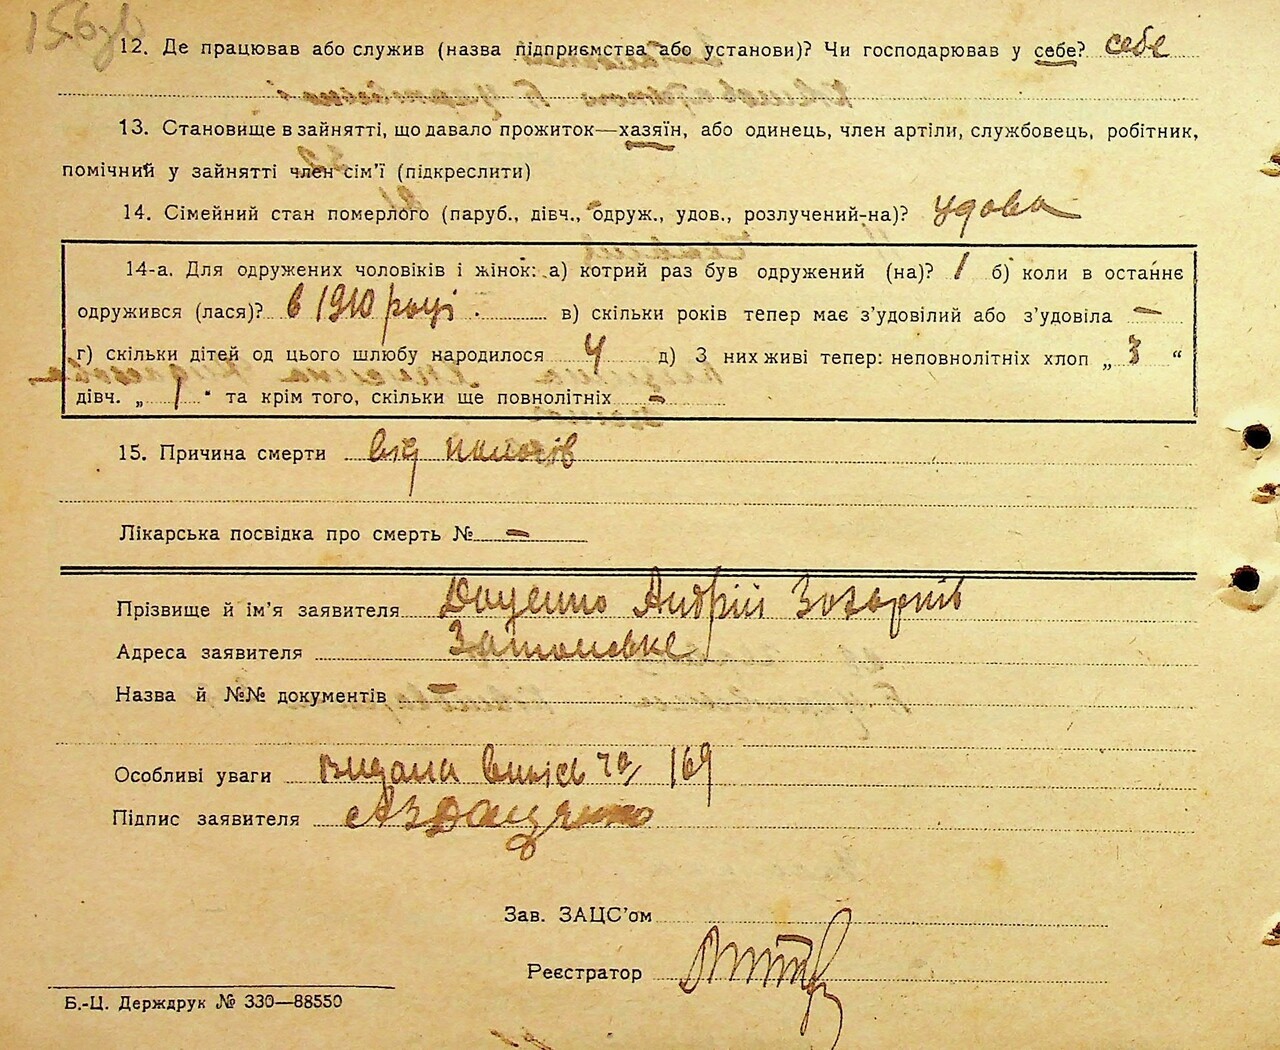 156зв
12. Де працював або служив (назва підприємства або установи)? Чи господарював у себе? себе
13. Становище в зайнятті, що давало прожиток—хазяїн, або одинець, член артіли, службовець, робітник,
помічний у зайнятті член сім'ї (підкреслити)
14. Сімейний стан померлого (паруб., дівч., одруж., удов., розлучений-на)? удова
14-а. Для одружених чоловіків і жінок: а) котрий раз був одружений (на)? 1 б) коли в останнє
одружився (лася)? в 1910 році . в) скільки років тепер має з'удовілий або з'удовіла —
г) скільки дітей од цього шлюбу народилося 4 д) З них живі тепер: неповнолітніх хлоп „ 3 “
дівч. „ 1 “ та крім того, скільки ще повнолітніх –
15. Причина смерти від пологів
Лікарська посвідка про смерть № –
Прізвище й ім'я заявителя Доценко Андрій
Адреса заявителя
Назва й №№ документів –
Особливі уваги видана випись за 169
Підпис заявителя
Зав. ЗАЦС'ом
Реєстратор
Б.-Ц. Держдрук № 330—88550